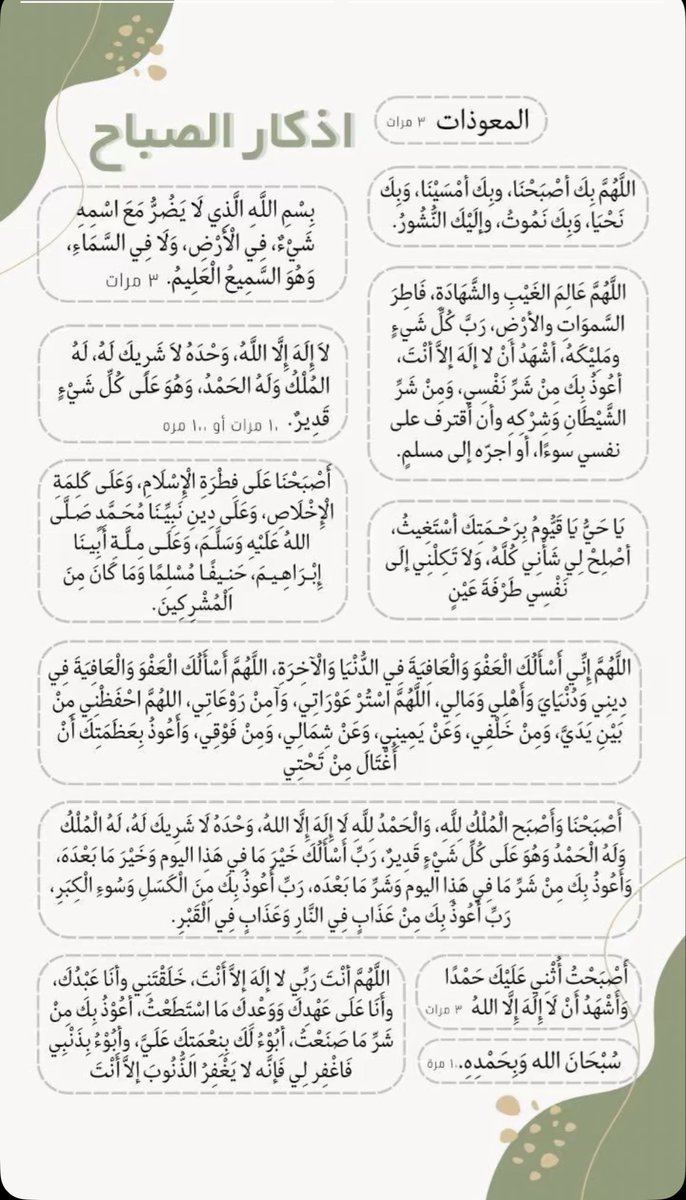 اذكار الصباح
المعوذات ٣ مرات
اللَّهُمَّ بِكَ أصْبَحْنَا، وبِكَ أمْسَيْنَا، وَبِكَ
نَحْيَا، وَبِكَ نَمُوتُ، وإلَيْكَ النُّشُورُ.
بِسْمِ اللَّهِ الَّذِي لَا يَضُرُّ مَعَ اسْمِهِ
شَيْءٌ، فِي الْأَرْضِ، وَلَا فِي السَّمَاءِ،
وَهُوَ السَّمِيعُ الْعَلِيمُ. ٣ مرات
اللَّهُمَّ عَالِمَ الغَيْبِ والشَّهَادَةِ، فَاطِرَ
السَّموَاتِ والأرْضِ، رَبَّ كُلِّ شَيءٍ
ومَلِيْكَهُ، أشْهَدُ أنْ لا إلهَ إلاَّ أنْتَ،
أعُوذُ بِكَ مِنْ شَرِّ نَفْسِي، وَمِنْ شَرِّ
الشَّيْطَانِ وَشِرْكِهِ وأن أقترف على
نفسي سوءًا، أو اجرّه إلى مسلمٍ.
لاَ إلَهَ إلَّا اللَّهُ، وَحْدَهُ لاَ شَرِيكَ لَهُ، لَهُ
المُلْكُ وَلَهُ الحَمْدُ، وَهُوَ عَلَى كُلِّ شَيْءٍ
قَدِيرٌ. ١٠ مرات أو ١٠٠ مره
أَصْبَحْنَا عَلَى فِطْرَةِ الْإِسْلَامِ، وَعَلَى كَلِمَةِ
الْإِخْلَاصِ، وَعَلَى دِينِ نَبِيِّنَا مُحَمَّدٍ صَلَّى
اللهُ عَلَيْهِ وَسَلَّمَ، وَعَلَى مِلَّةِ أَبِينَا
إِبْرَاهِيمَ، حَنِيفًا مُسْلِمًا وَمَا كَانَ مِنَ
الْمُشْرِكِينَ.
يَا حَيُّ يَا قَيُّومُ بِرَحْمَتِكَ أسْتَغِيثُ،
أَصْلِحْ لِي شَأْنِي كُلَّهُ، وَلاَ تَكِلْنِي إلَى
نَفْسِي طَرْفَةَ عَيْنٍ
اللَّهُمَّ إِنِّي أَسْأَلُكَ الْعَفْوَ وَالْعَافِيَةَ فِي الدُّنْيَا وَالْآخِرَةِ، اللَّهُمَّ أَسْأَلُكَ الْعَفْوَ وَالْعَافِيَةَ فِي
دِينِي وَدُنْيَايَ وَأَهْلِي وَمَالِي، اللَّهُمَّ اسْتُرْ عَوْرَاتِي، وَآمِنْ رَوْعَاتِي، اللهُمَّ احْفَظْنِي مِنْ
بَيْنِ يَدَيَّ، وَمِنْ خَلْفِي، وَعَنْ يَمِينِي، وَعَنْ شِمَالِي، وَمِنْ فَوْقِي، وَأَعُوذُ بِعَظَمَتِكَ أَنْ
أُغْتَالَ مِنْ تَحْتِي
أَصْبَحْنَا وَأَصْبَحَ الْمُلْكُ لِلَّهِ، وَالْحَمْدُ لِلَّهِ لَا إِلَهَ إِلَّا اللهُ، وَحْدَهُ لَا شَرِيكَ لَهُ، لَهُ الْمُلْكُ
وَلَهُ الْحَمْدُ وَهُوَ عَلَى كُلِّ شَيْءٍ قَدِيرٌ، رَبِّ أَسْأَلُكَ خَيْرَ مَا فِي هَذِا اليوم وَخَيْرَ مَا بَعْدَهَ،
وَأَعُوذُ بِكَ مِنْ شَرِّ مَا فِي هَذِا اليوم وَشَرِّ مَا بَعْدَه، رَبِّ أَعُوذُ بِكَ مِنَ الْكَسَلِ وَسُوءِ الْكِبَرِ،
رَبِّ أَعُوذُ بِكَ مِنْ عَذَابٍ فِي النَّارِ وَعَذَابٍ فِي الْقَبْرِ.
أَصْبَحْتُ أُثْنِي عَلَيْكَ حَمْدًا
وَأَشْهَدُ أَنْ لَا إِلَهَ إِلَّا اللهُ ٣ مرات
سُبْحَانَ الله وَبِحَمْدِهِ. ١٠٠ مرة
اللَّهُمَّ أنْتَ رَبِّي لا إلَهَ إلاَّ أَنْتَ، خَلَقْتَنِي وأنَا عَبْدُكَ،
وأَنَا عَلَى عَهْدِكَ وَوَعْدِكَ مَا اسْتَطَعْتُ، أعُوْذُ بِكَ مِنْ
شَرِّ مَا صَنَعْتُ، أبُوْءُ لَكَ بِنِعْمَتِكَ عَلَيَّ، وأبُوْءُ بِذَنْبِي
فَاغْفِر لِي فَإنَّه لا يَغْفِرُ الذُّنُوبَ إلاَّ أنْتَ